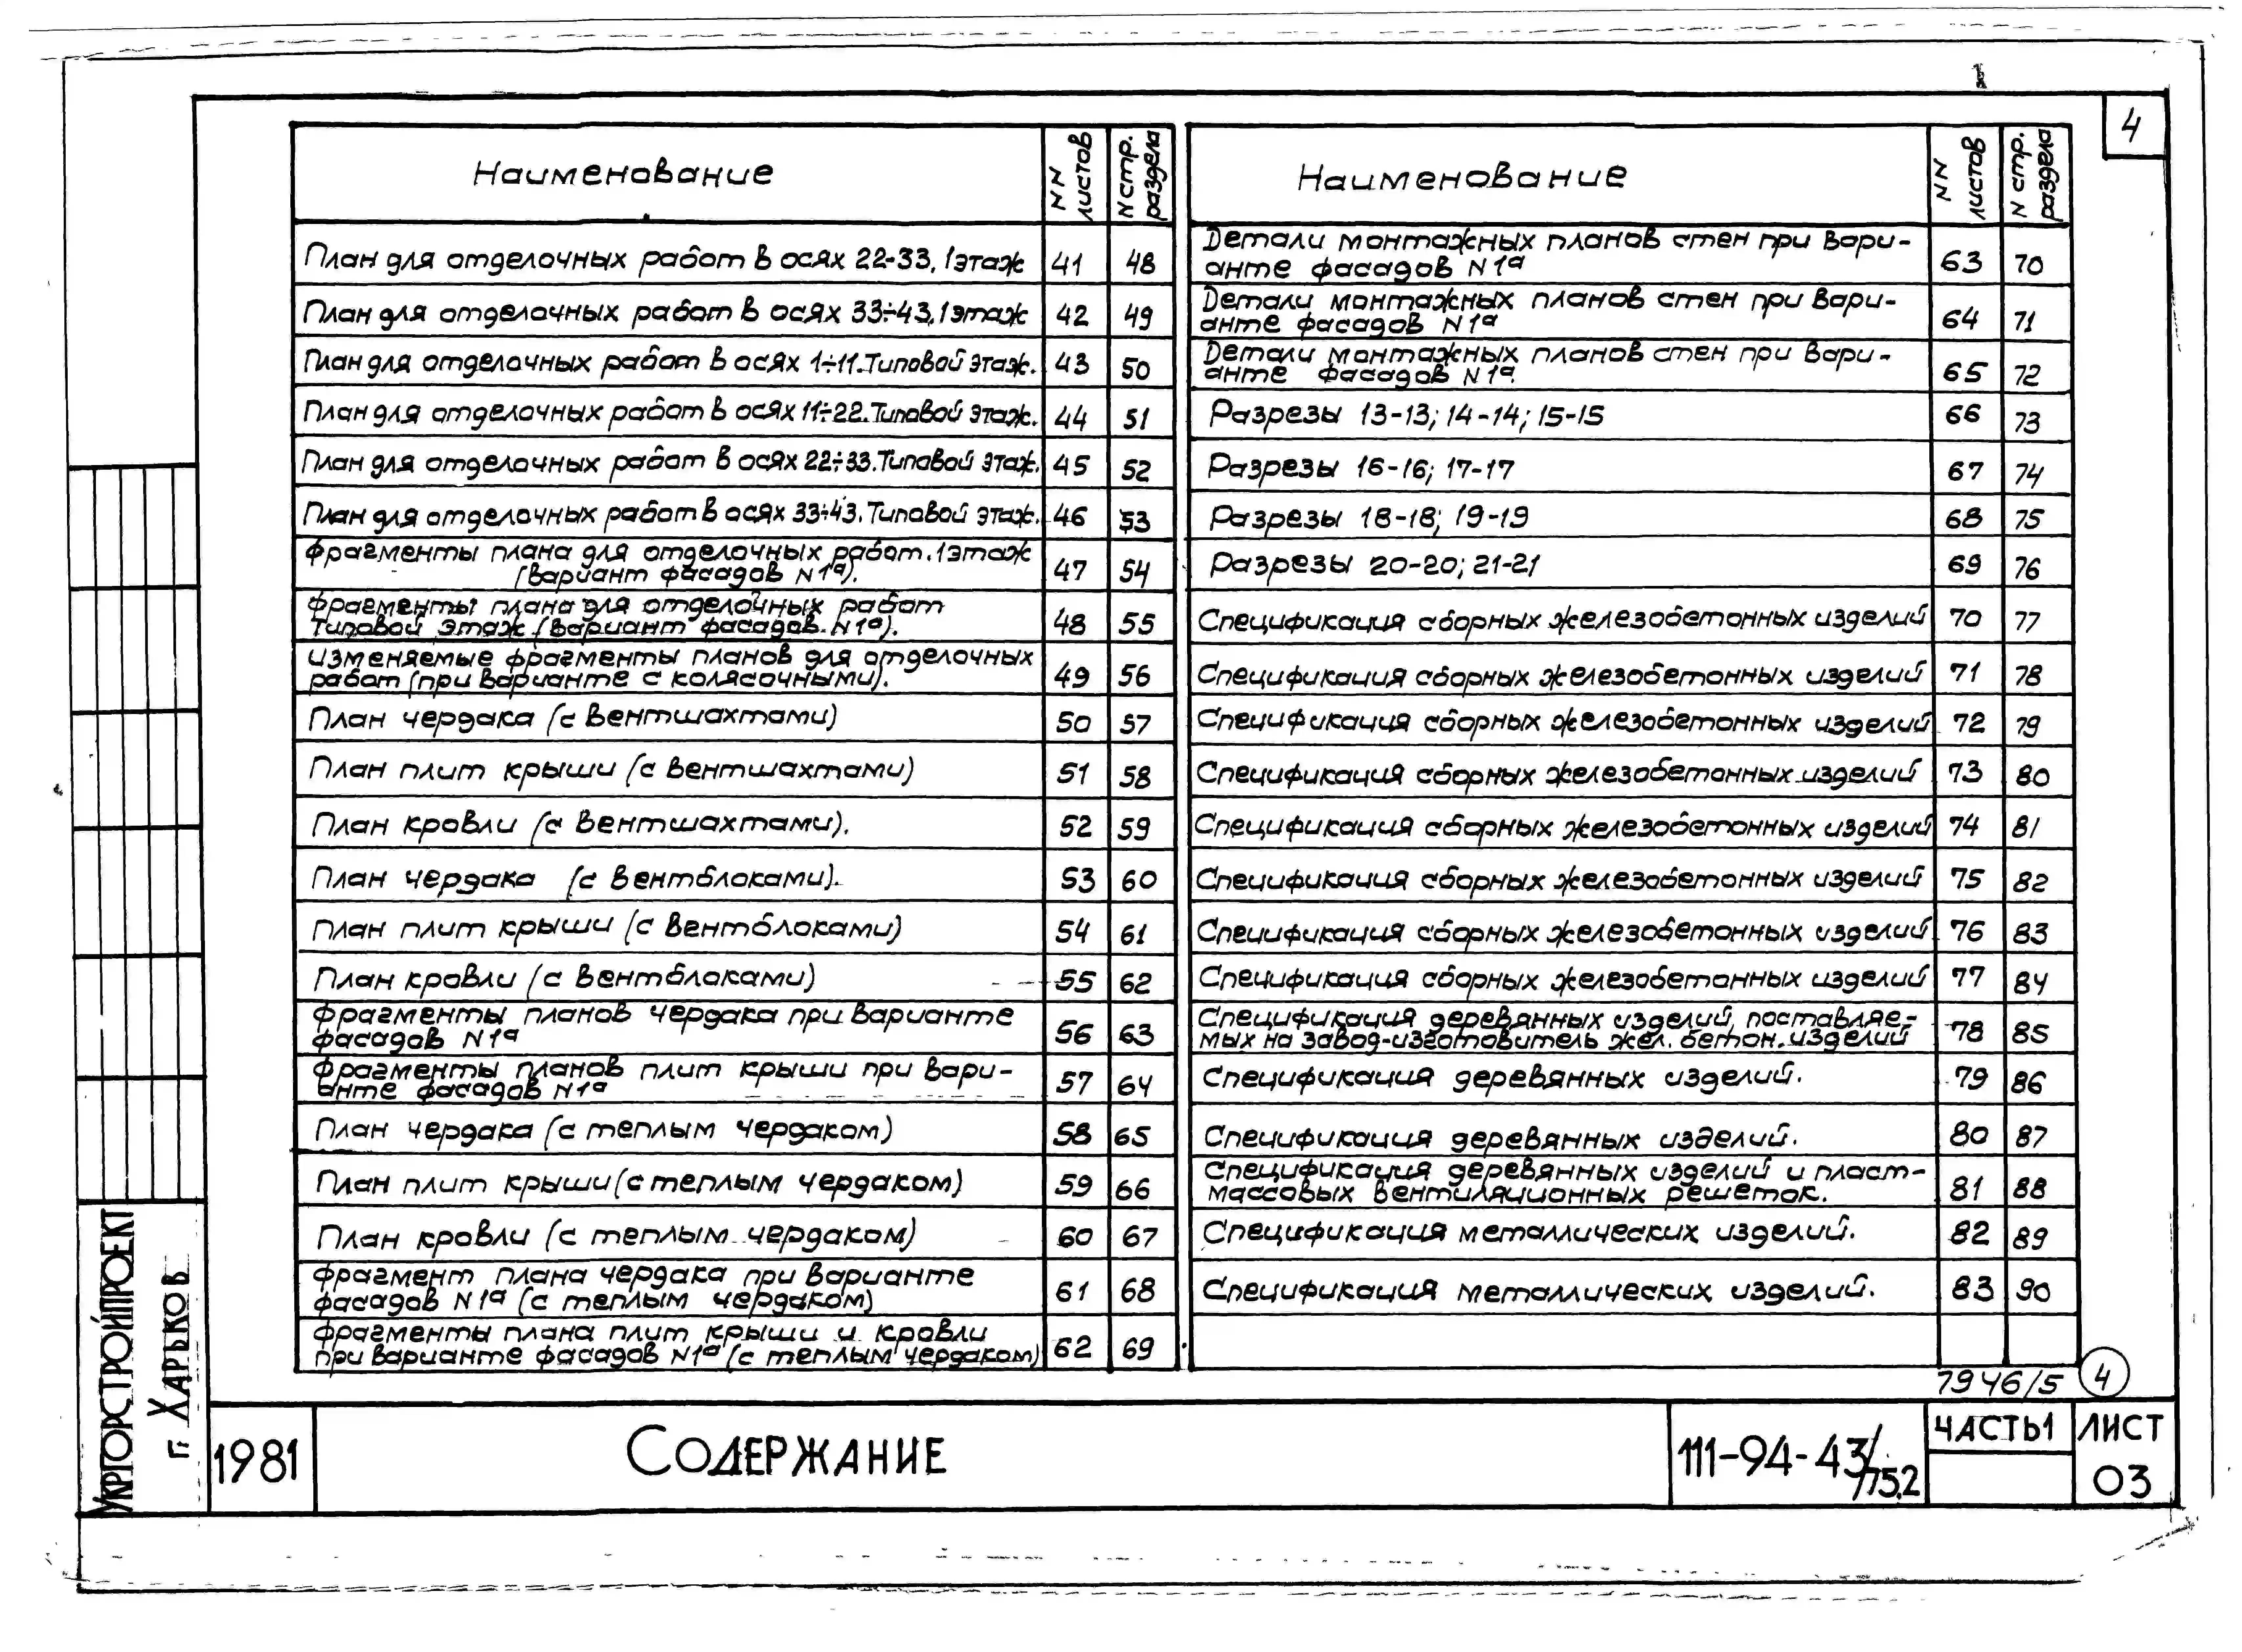 4
Наименование
NN листов
N стр. раздела
План для отделочных работ в осях 22-33. 1этаж 41 48
План для отделочных работ в осях 33÷43. 1этаж 42 49
План для отделочных работ в осях 1÷11. Типовой этаж. 43 50
План для отделочных работ в осях 11÷22. Типовой этаж. 44 51
План для отделочных работ в осях 22÷33. Типовой этаж. 45 52
План для отделочных работ в осях 33÷43. Типовой этаж. 46 53
Фрагменты плана для отделочных работ. 1этаж
(вариант фасадов N1а). 47 54
Фрагменты плана для отделочных работ
Типовой этаж (вариант фасадов N1а). 48 55
Изменяемые фрагменты планов для отделочных
работ (при варианте с колясочными). 49 56
План чердака (с вентшахтами) 50 57
План плит крыши (с вентшахтами) 51 58
План кровли (с вентшахтами). 52 59
План чердака (с вентблоками). 53 60
План плит крыши (с вентблоками) 54 61
План кровли (с вентблоками) 55 62
Фрагменты планов чердака при варианте
фасадов N1а 56 63
Фрагменты планов плит крыши при вари-
анте фасадов N1а 57 64
План чердака (с теплым чердаком) 58 65
План плит крыши (с теплым чердаком) 59 66
План кровли (с теплым чердаком) 60 67
Фрагмент плана чердака при варианте
фасадов N1а (с теплым чердаком) 61 68
Фрагменты плана плит крыши и кровли
при варианте фасадов N1а (с теплым чердаком) 62 69
Наименование
NN листов
N стр. раздела
Детали монтажных планов стен при вари-
анте фасадов N1а 63 70
Детали монтажных планов стен при вари-
анте фасадов N1а 64 71
Детали монтажных планов стен при вари-
анте фасадов N1а. 65 72
Разрезы 13-13; 14-14; 15-15 66 73
Разрезы 16-16; 17-17 67 74
Разрезы 18-18; 19-19 68 75
Разрезы 20-20; 21-21 69 76
Спецификация сборных железобетонных изделий 70 77
Спецификация сборных железобетонных изделий 71 78
Спецификация сборных железобетонных изделий 72 79
Спецификация сборных железобетонных изделий 73 80
Спецификация сборных железобетонных изделий 74 81
Спецификация сборных железобетонных изделий 75 82
Спецификация сборных железобетонных изделий 76 83
Спецификация сборных железобетонных изделий 77 84
Спецификация деревянных изделий, поставляе-
мых на завод-изготовитель жел. бетон. изделий 78 85
Спецификация деревянных изделий. 79 86
Спецификация деревянных изделий. 80 87
Спецификация деревянных изделий и пласт-
массовых вентиляционных решеток. 81 88
Спецификация металлических изделий. 82 89
Спецификация металлических изделий. 83 90
7946/5 4
УКРГОРСТРОЙПРОЕКТ
г. ХАРЬКОВ
1981
СОДЕРЖАНИЕ
111-94-43/75.2
ЧАСТЬ 1
ЛИСТ
03